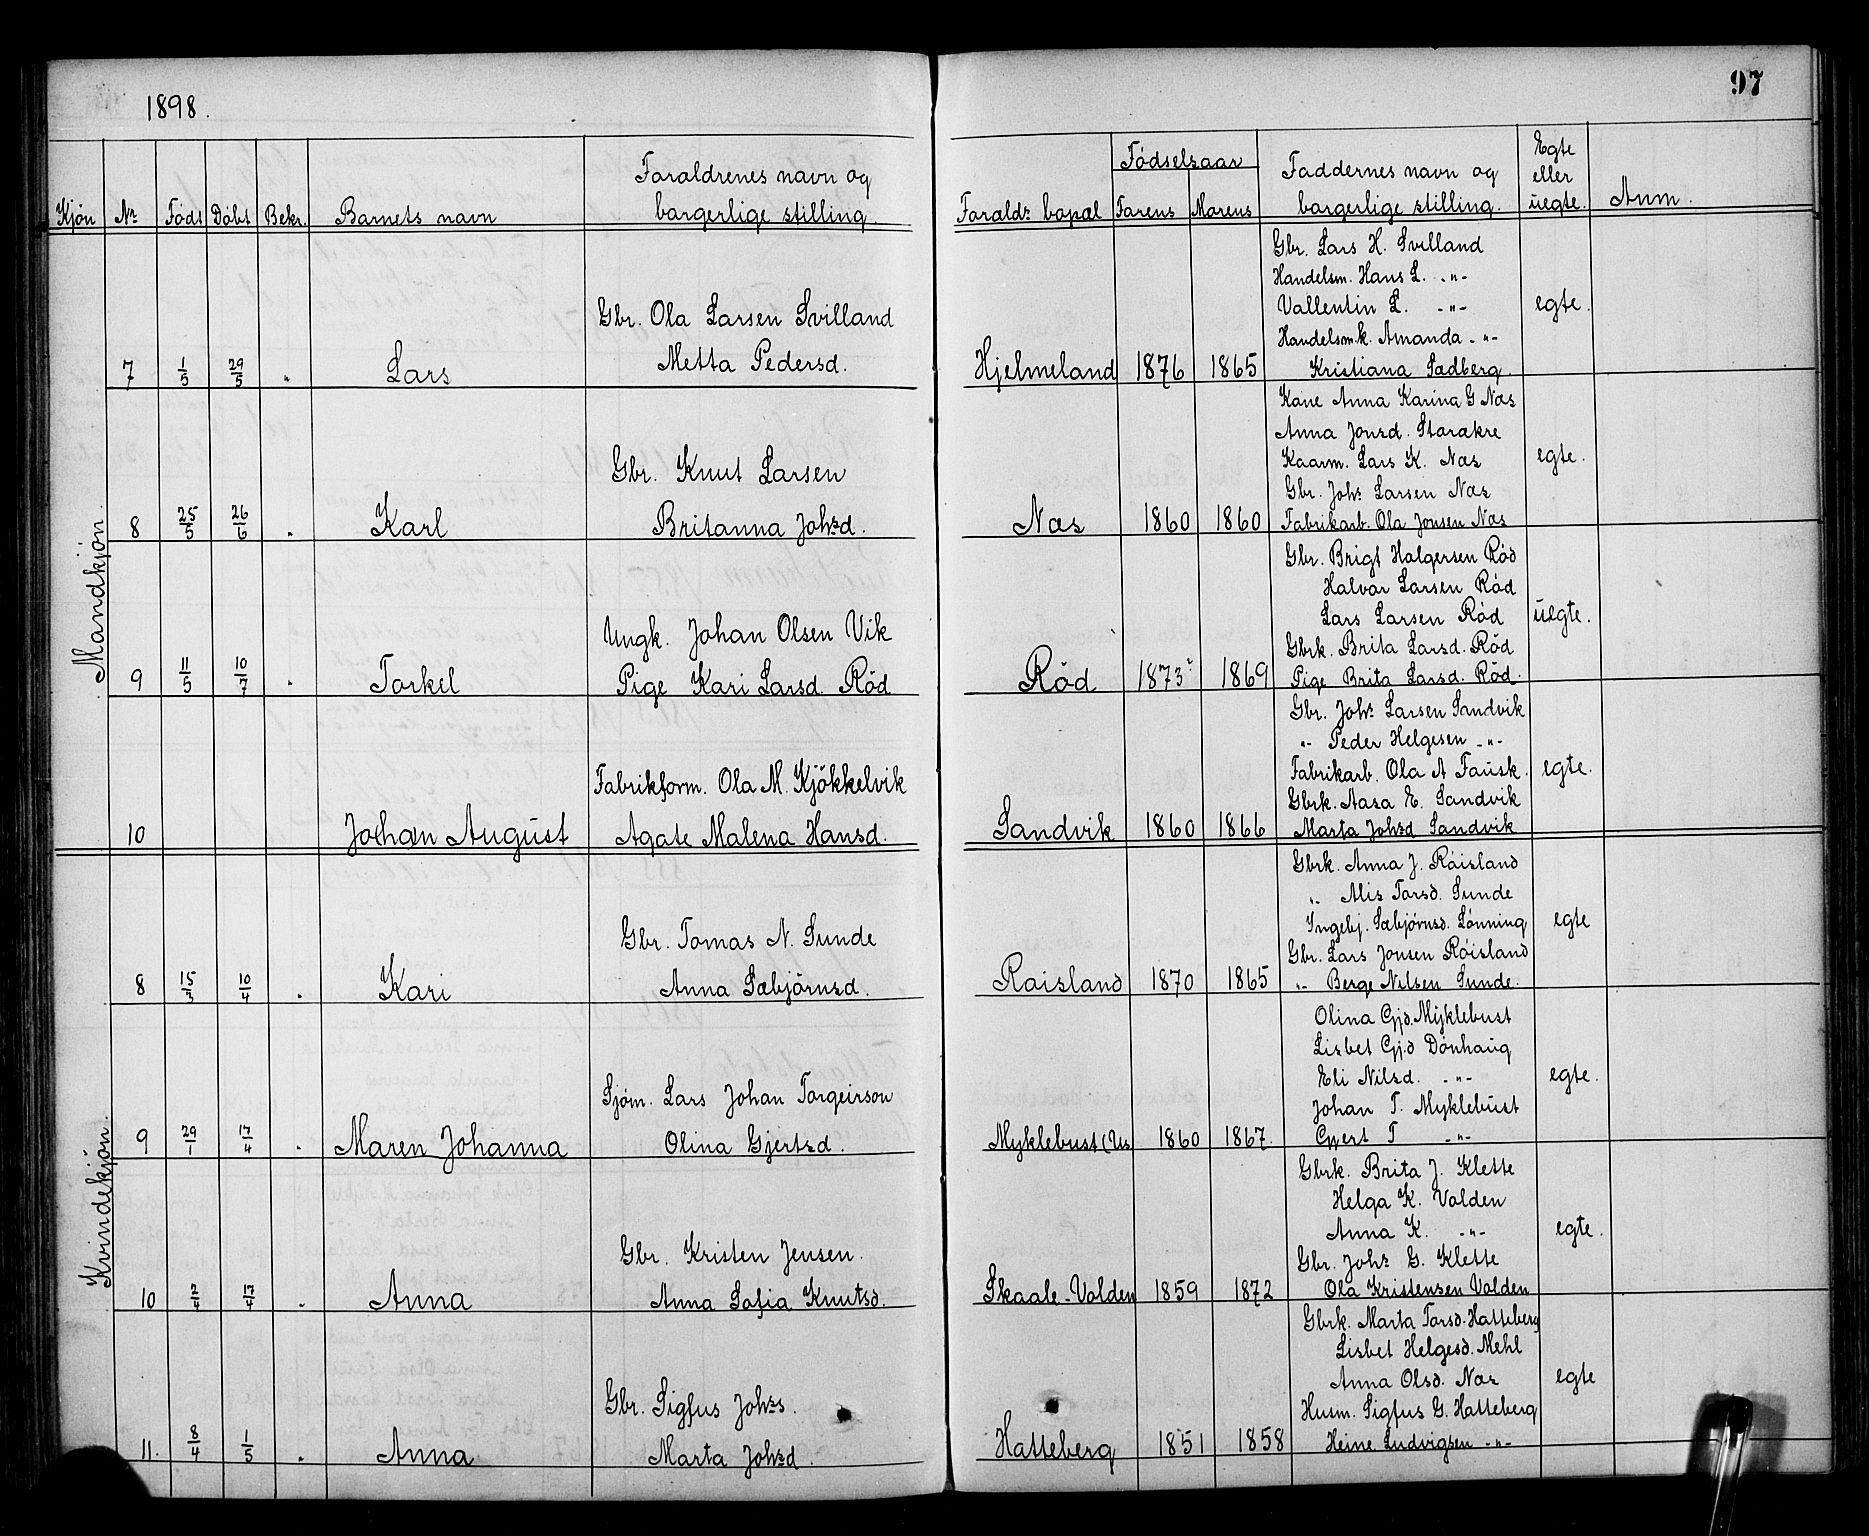 1898.
97
Kjön Nr Födt Döbt Bekr. Barnets navn Foraldrenes navn og borgerlige stilling. Forald: bopæl Födselsaar Farens Morens Faddernes navn og borgerlige stilling. Egte eller uegte. Anm.
Mandkjön.
7 1/5 29/5 " Lars
Gbr. Ola Larsen Svilland
Metta Pedersd.
Hjelmeland 1876 1865
Gbr. Lars H. Svilland
Handelsm. Hans L. -"-
Vallentin L. -"-
Handelsm.k. Amanda -"-
Kristiana Sadberg
egte.
8 25/5 26/6 " Karl
Gbr. Knut Larsen
Britanna Johsd.
Næs 1860 1860
Kone Anna Karina G Næs
Anna Jonsd. Starakre
Kaarm. Lars K. Næs
Gbr. Johs Larsen Næs
Fabrikarb. Ola Jonsen Næs
egte.
9 11/5 10/7 " Torkel
Ungk. Johan Olsen Vik
Pige Kari Larsd. Röd
Röd 1873 1869
Gbr. Brigt Halgersen Röd
Halvor Larsen Röd
Lars Larsen Röd
Gbrk. Brita Larsd. Röd
Pige Brita Larsd. Röd.
uegte.
10 Johan August
Fabrikform. Ola M. Kjökkelvik
Agate Malena Hansd.
Sandvik 1860 1866
Gbr. Johs Larsen Sandvik
" Peder Helgesen -"-
Fabrikarb. Ola A Fausk.
Gbrk. Aasa E. Sandvik
Marta Johsd Sandvik
egte.
Kvindekjön.
8 15/3 10/4 " Kari
Gbr. Tomas N. Sunde
Anna Sæbjörnsd.
Röisland 1870 1865
Gbrk. Anna J. Röisland
" Alis Torsd. Sunde
Ingebj. Sæbjörnsd. Lönning
Gbr. Lars Jonsen Röisland
" Berge Nilsen Sunde.
egte
9 29/1 17/4 " Maren Johanna
Sjöm. Lars Johan Torgeirson
Olina Gjertsd.
Myklebust 1860 1867.
Olina Gjd. Myklebust
Lisbet Gj.d Dönhaug
Eli Nilsd. -"-
Johan T. Myklebust
Gjert T -"-
egte.
10 2/4 17/4 " Anna
Gbr. Kristen Jensen.
Anna Sofia Knutsd.
Skaale-Valden 1859 1872
Gbrk. Brita J. Klette
Helga K. Valden
Anna K. -"-
Gbr. Johs G. Klette
Ola Kristensen Valden
egte.
11. 8/4 1/5 " Anna
Gbr. Sigfus Johs.
Marta Johsd.
Hatteberg 1851 1858
Gbrk. Marta Torsd. Hatteberg
Lisbet Helgesd. Mehl
Anna Olsd. Næs
Husm. Sigfus G. Hatteberg
Heine Ludvigsen -"-
egte